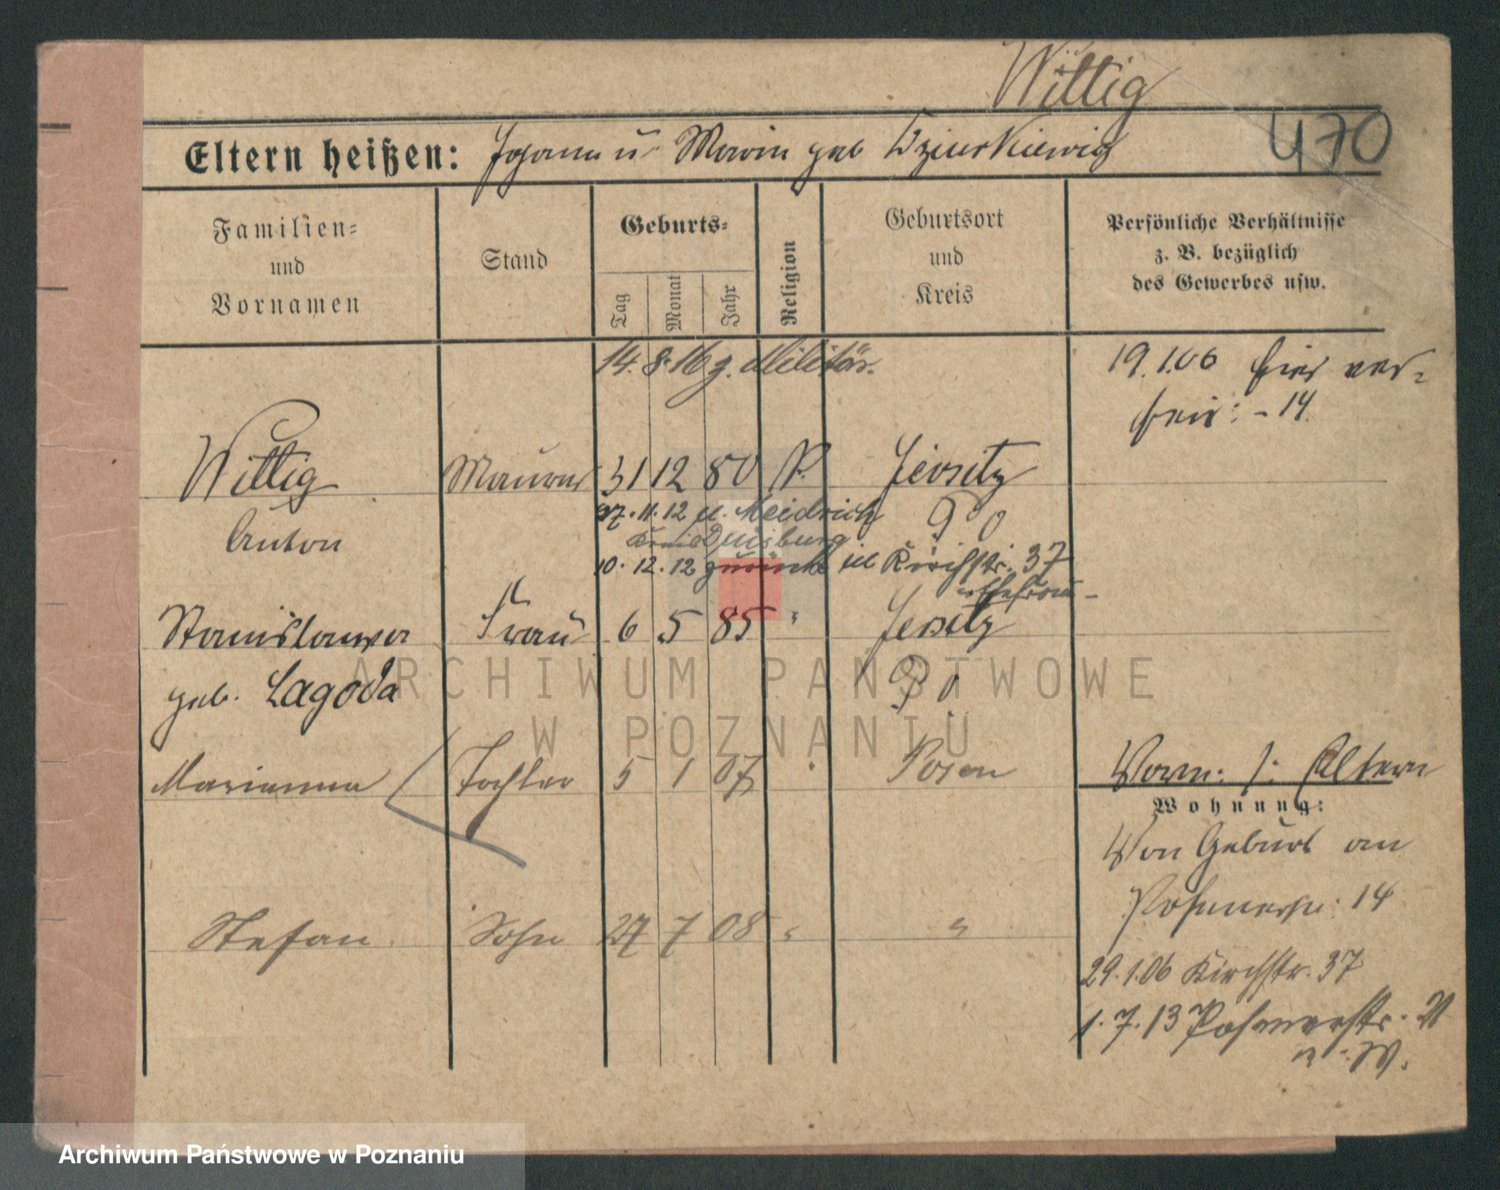 Wittig
Eltern heißen: Johann u. Maria geb Dziurkiewicz
470
Familien-
und
Vornamen
Stand
Geburts-
Tag
Monat
Jahr
Religion
Geburtsort
und
Kreis
Persönliche Verhältnisse
z. B. bezüglich
des Gewerbes usw.
14. 8. 16 z. Militär.
19.1.06 hier ver-
heir: - 14
Wittig Maurer 31 12 80 k. Jersitz
Anton
27. 11. 12 n. Meidrich
Kreis Duisburg
10. 12. 12 zurück in Kirchstr. 37
Stanislawa Frau 6 5 85 " Jersitz
geb. Lagoda
Marianna Tochter 5 1 07 " Posen
Vorm: /: Eltern
Wohnung:
Von Geburt an
14
Stefan Sohn 27 7 08 " "
29.1.06 Kirchstr. 37
1. 7. 13 21
ARCHIWUM PAŃSTWOWE
W POZNANIU
Archiwum Państwowe w Poznaniu